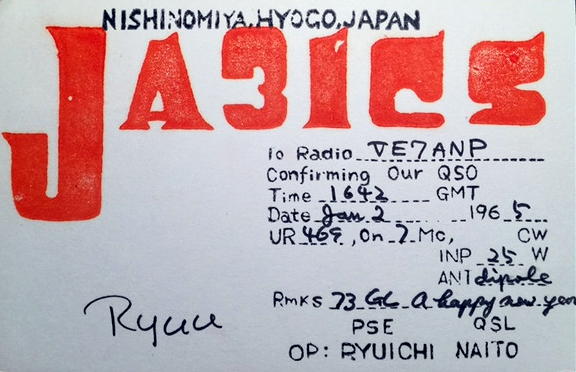 NISHINOMIYA.HYOGO,JAPAN
JA3ICS
To Radio VE7ANP
Confirming Our QSO
Time 1642 GMT
Date Jan 2 1965
UR 469, On 7 Mc, CW
INP 25 W
ANT dipole
Rmks 73 GL A happy new year
PSE QSL
Ryuu
OP: RYUICHI NAITO